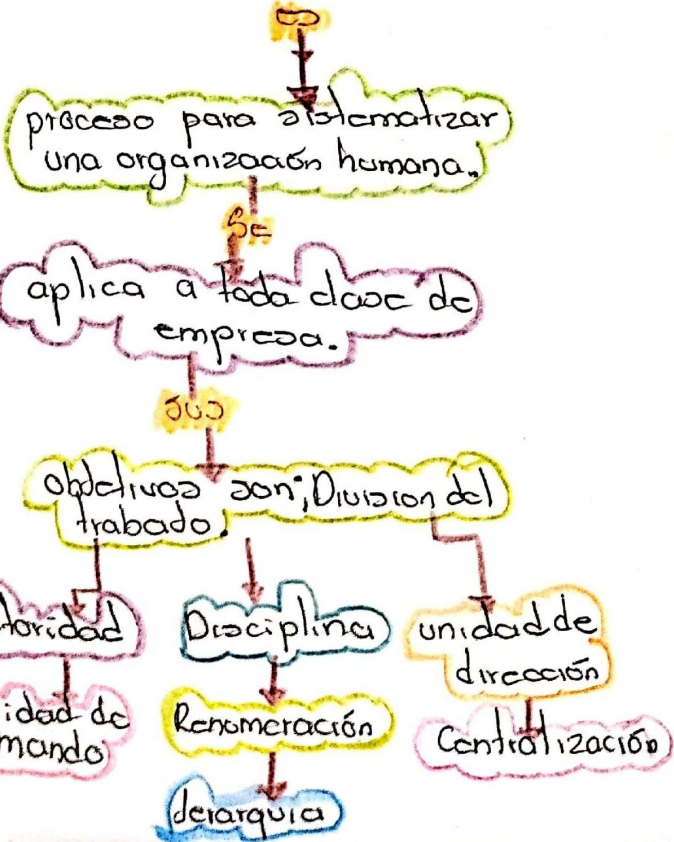 proceso para sistematizar
una organización humana.
Se
aplica a toda clase de
empresa.
sus
objetivos son; Division del
trabajo.
toridad
Disciplina
unidad de
dirección
idad de
mando
Renumeración
Jerarquia
Centralización